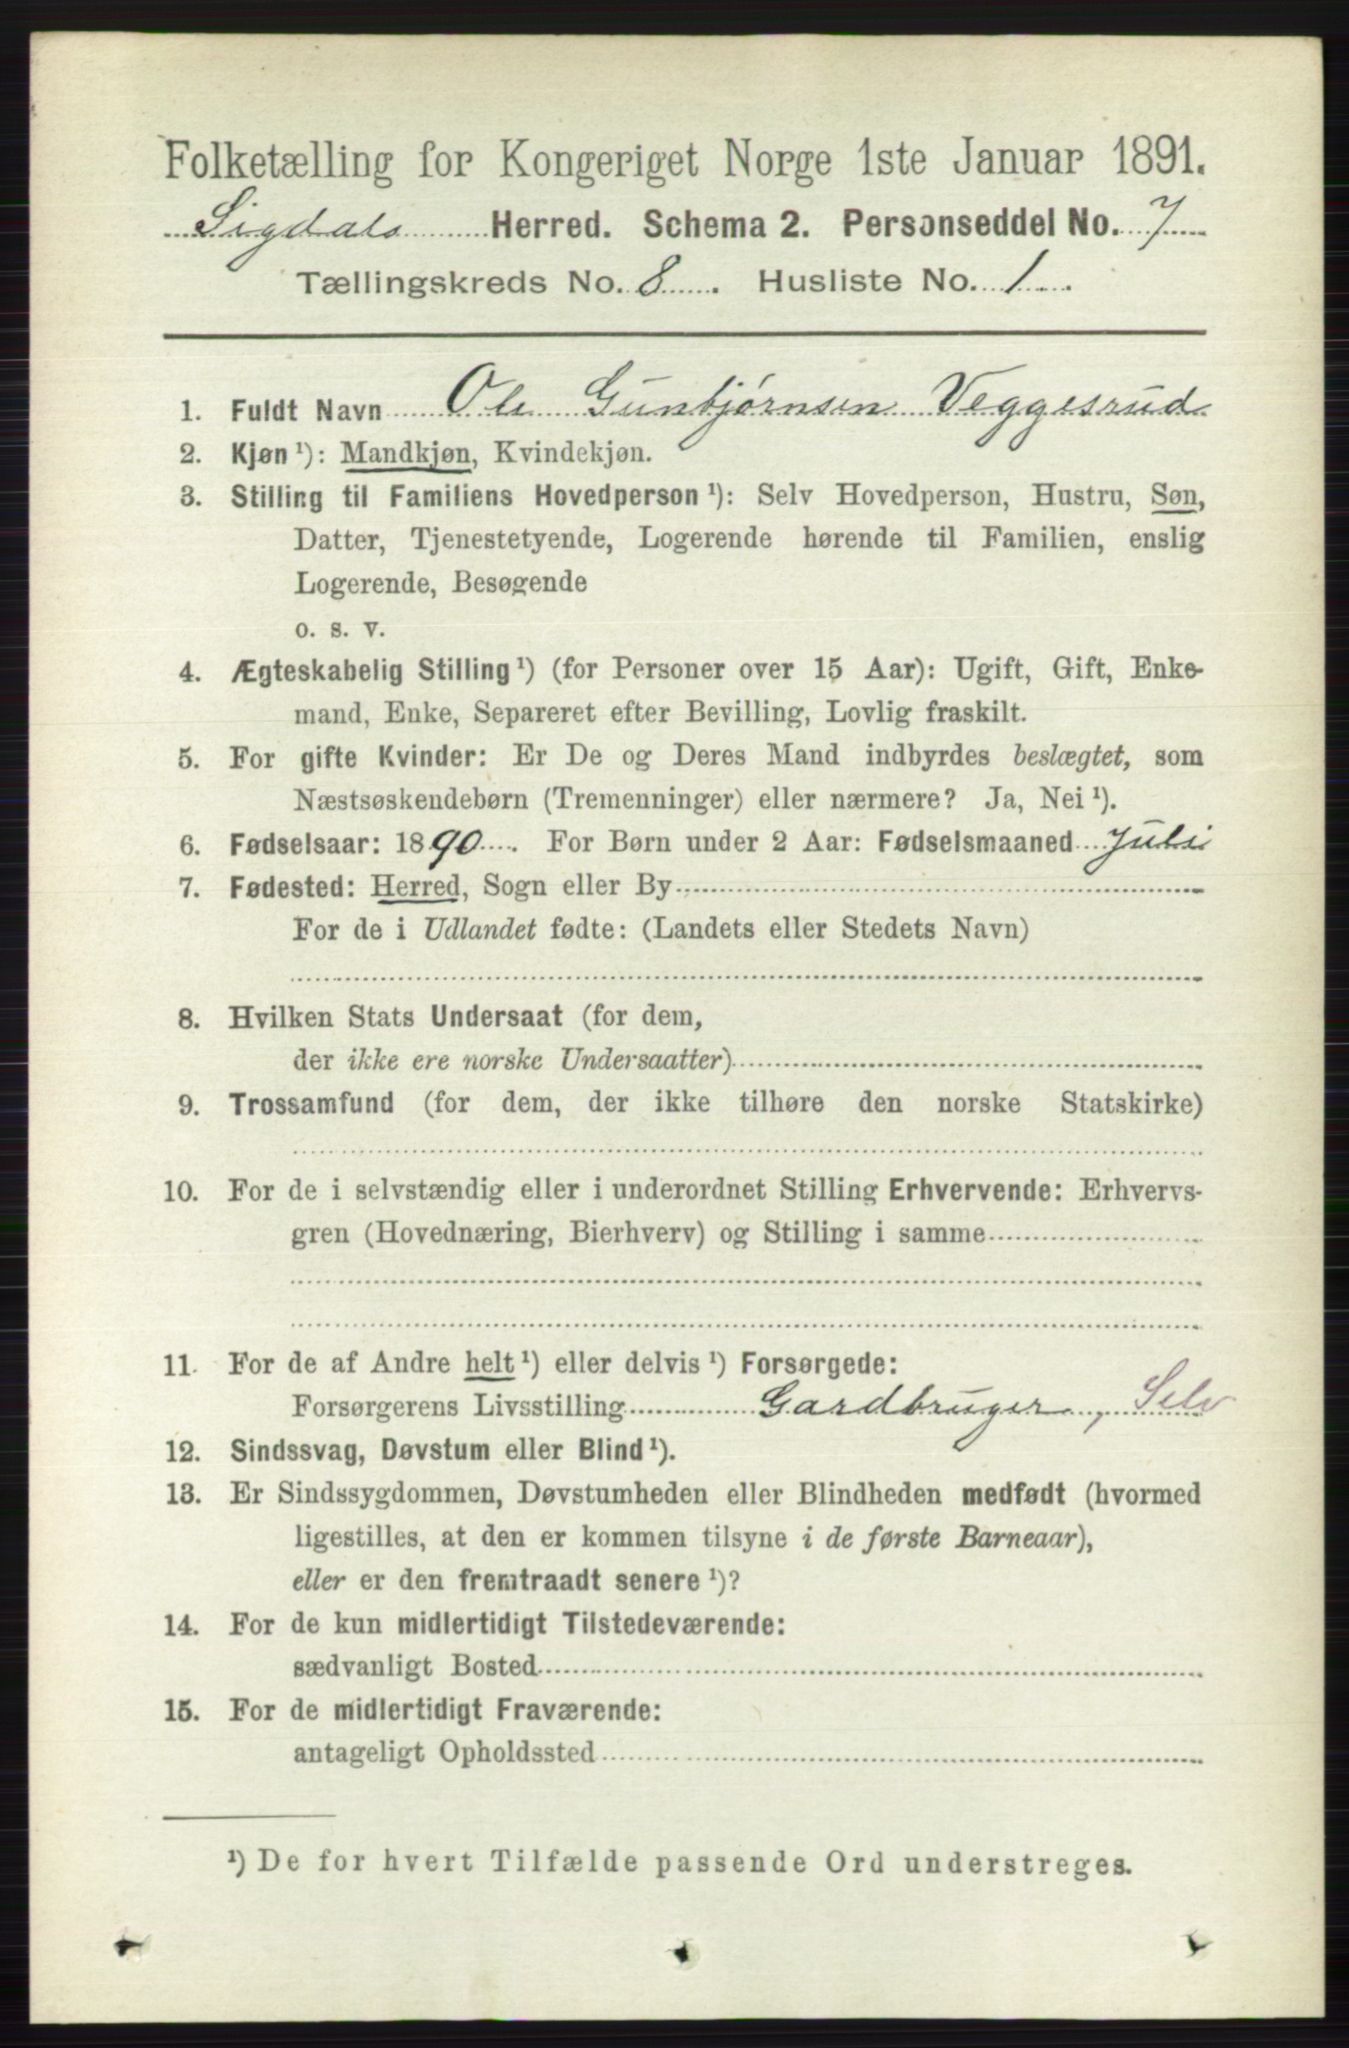 Folketælling for Kongeriget Norge 1ste Januar 1891.
Sigdals Herred. Schema 2. Personseddel No. 7
Tællingskreds No. 8. Husliste No. 1.
1. Fuldt Navn Ole Gunbjørnsen Veggesrud
2. Kjøn ¹): Mandkjøn, Kvindekjøn.
3. Stilling til Familiens Hovedperson ¹): Selv Hovedperson, Hustru, Søn,
Datter, Tjenestetyende, Logerende hørende til Familien, enslig
Logerende, Besøgende
o. s. v.
4. Ægteskabelig Stilling ¹) (for Personer over 15 Aar): Ugift, Gift, Enke-
mand, Enke, Separeret efter Bevilling, Lovlig fraskilt.
5. For gifte Kvinder: Er De og Deres Mand indbyrdes beslægtet, som
Næstsøskendebørn (Tremenninger) eller nærmere? Ja, Nei ¹).
6. Fødselsaar: 1890. For Børn under 2 Aar: Fødselsmaaned Juli
7. Fødested: Herred, Sogn eller By
For de i Udlandet fødte: (Landets eller Stedets Navn)
8. Hvilken Stats Undersaat (for dem,
der ikke ere norske Undersaatter)
9. Trossamfund (for dem, der ikke tilhøre den norske Statskirke)
10. For de i selvstændig eller i underordnet Stilling Erhvervende: Erhvervs-
gren (Hovednæring, Bierhverv) og Stilling i samme
11. For de af Andre helt ¹) eller delvis ¹) Forsørgede:
Forsørgerens Livsstilling Gardbruger, Selv
12. Sindssvag, Døvstum eller Blind ¹).
13. Er Sindssygdommen, Døvstumheden eller Blindheden medfødt (hvormed
ligestilles, at den er kommen tilsyne i de første Barneaar),
eller er den fremtraadt senere ¹)?
14. For de kun midlertidigt Tilstedeværende:
sædvanligt Bosted
15. For de midlertidigt Fraværende:
antageligt Opholdssted
¹) De for hvert Tilfælde passende Ord understreges.